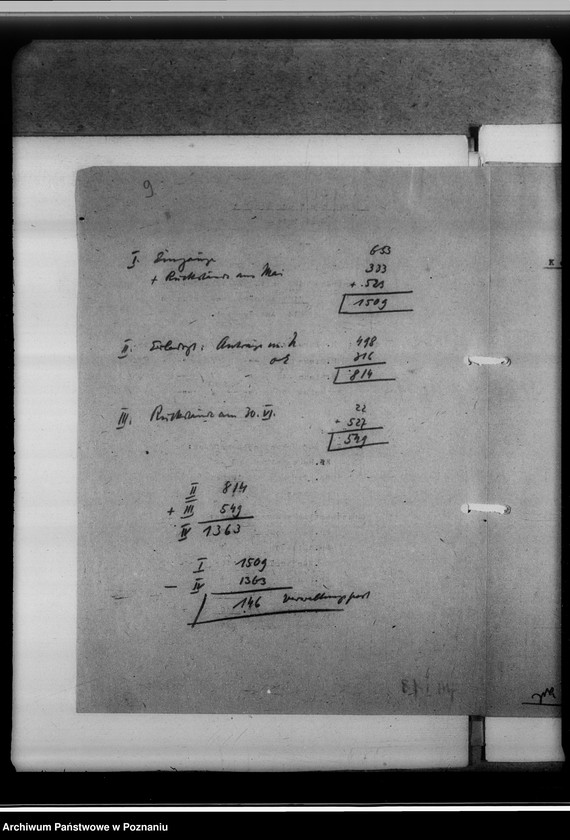 9
I. Eingänge 653
+ Rückstände aus Mai 333
+ 523
1509
II. Erledigt: Anträge m. K 498
o K 316
814
III. Rückstände am 30. VI. 22
+ 527
549
II 814
+ III 549
IV 1363
I 1509
— IV 1363
146 Verwaltungspost
K
Archiwum Państwowe w Poznaniu